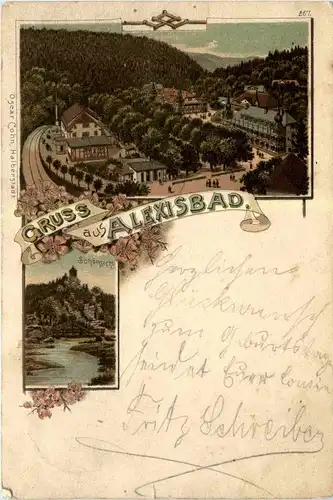 267.
Oscar Cohn, Halberstadt
GRUSS aus ALEXISBAD.
Schönsicht
Herzlichen
Glückwunsch
zum Geburtstage
sendet Euer
Fritz Schreiber